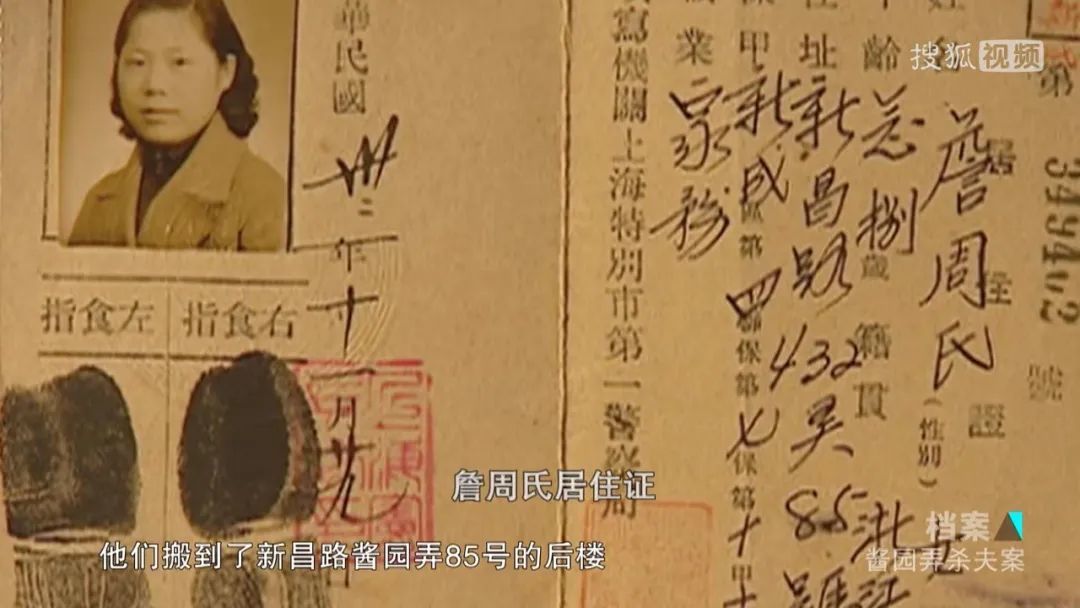 搜狐视频
第 349402 號
居住證
名 詹周氏 (性別)
齡 捌歲 籍貫 浙江
址 新昌路432弄85號
甲 新成區第四聯保第七保第十甲
業 家務
寫機關上海特別市第一警察局
華民國卅二年十一月廿九
右食指
左食指
詹周氏居住证
他们搬到了新昌路酱园弄85号的后楼
档案
酱园弄杀夫案